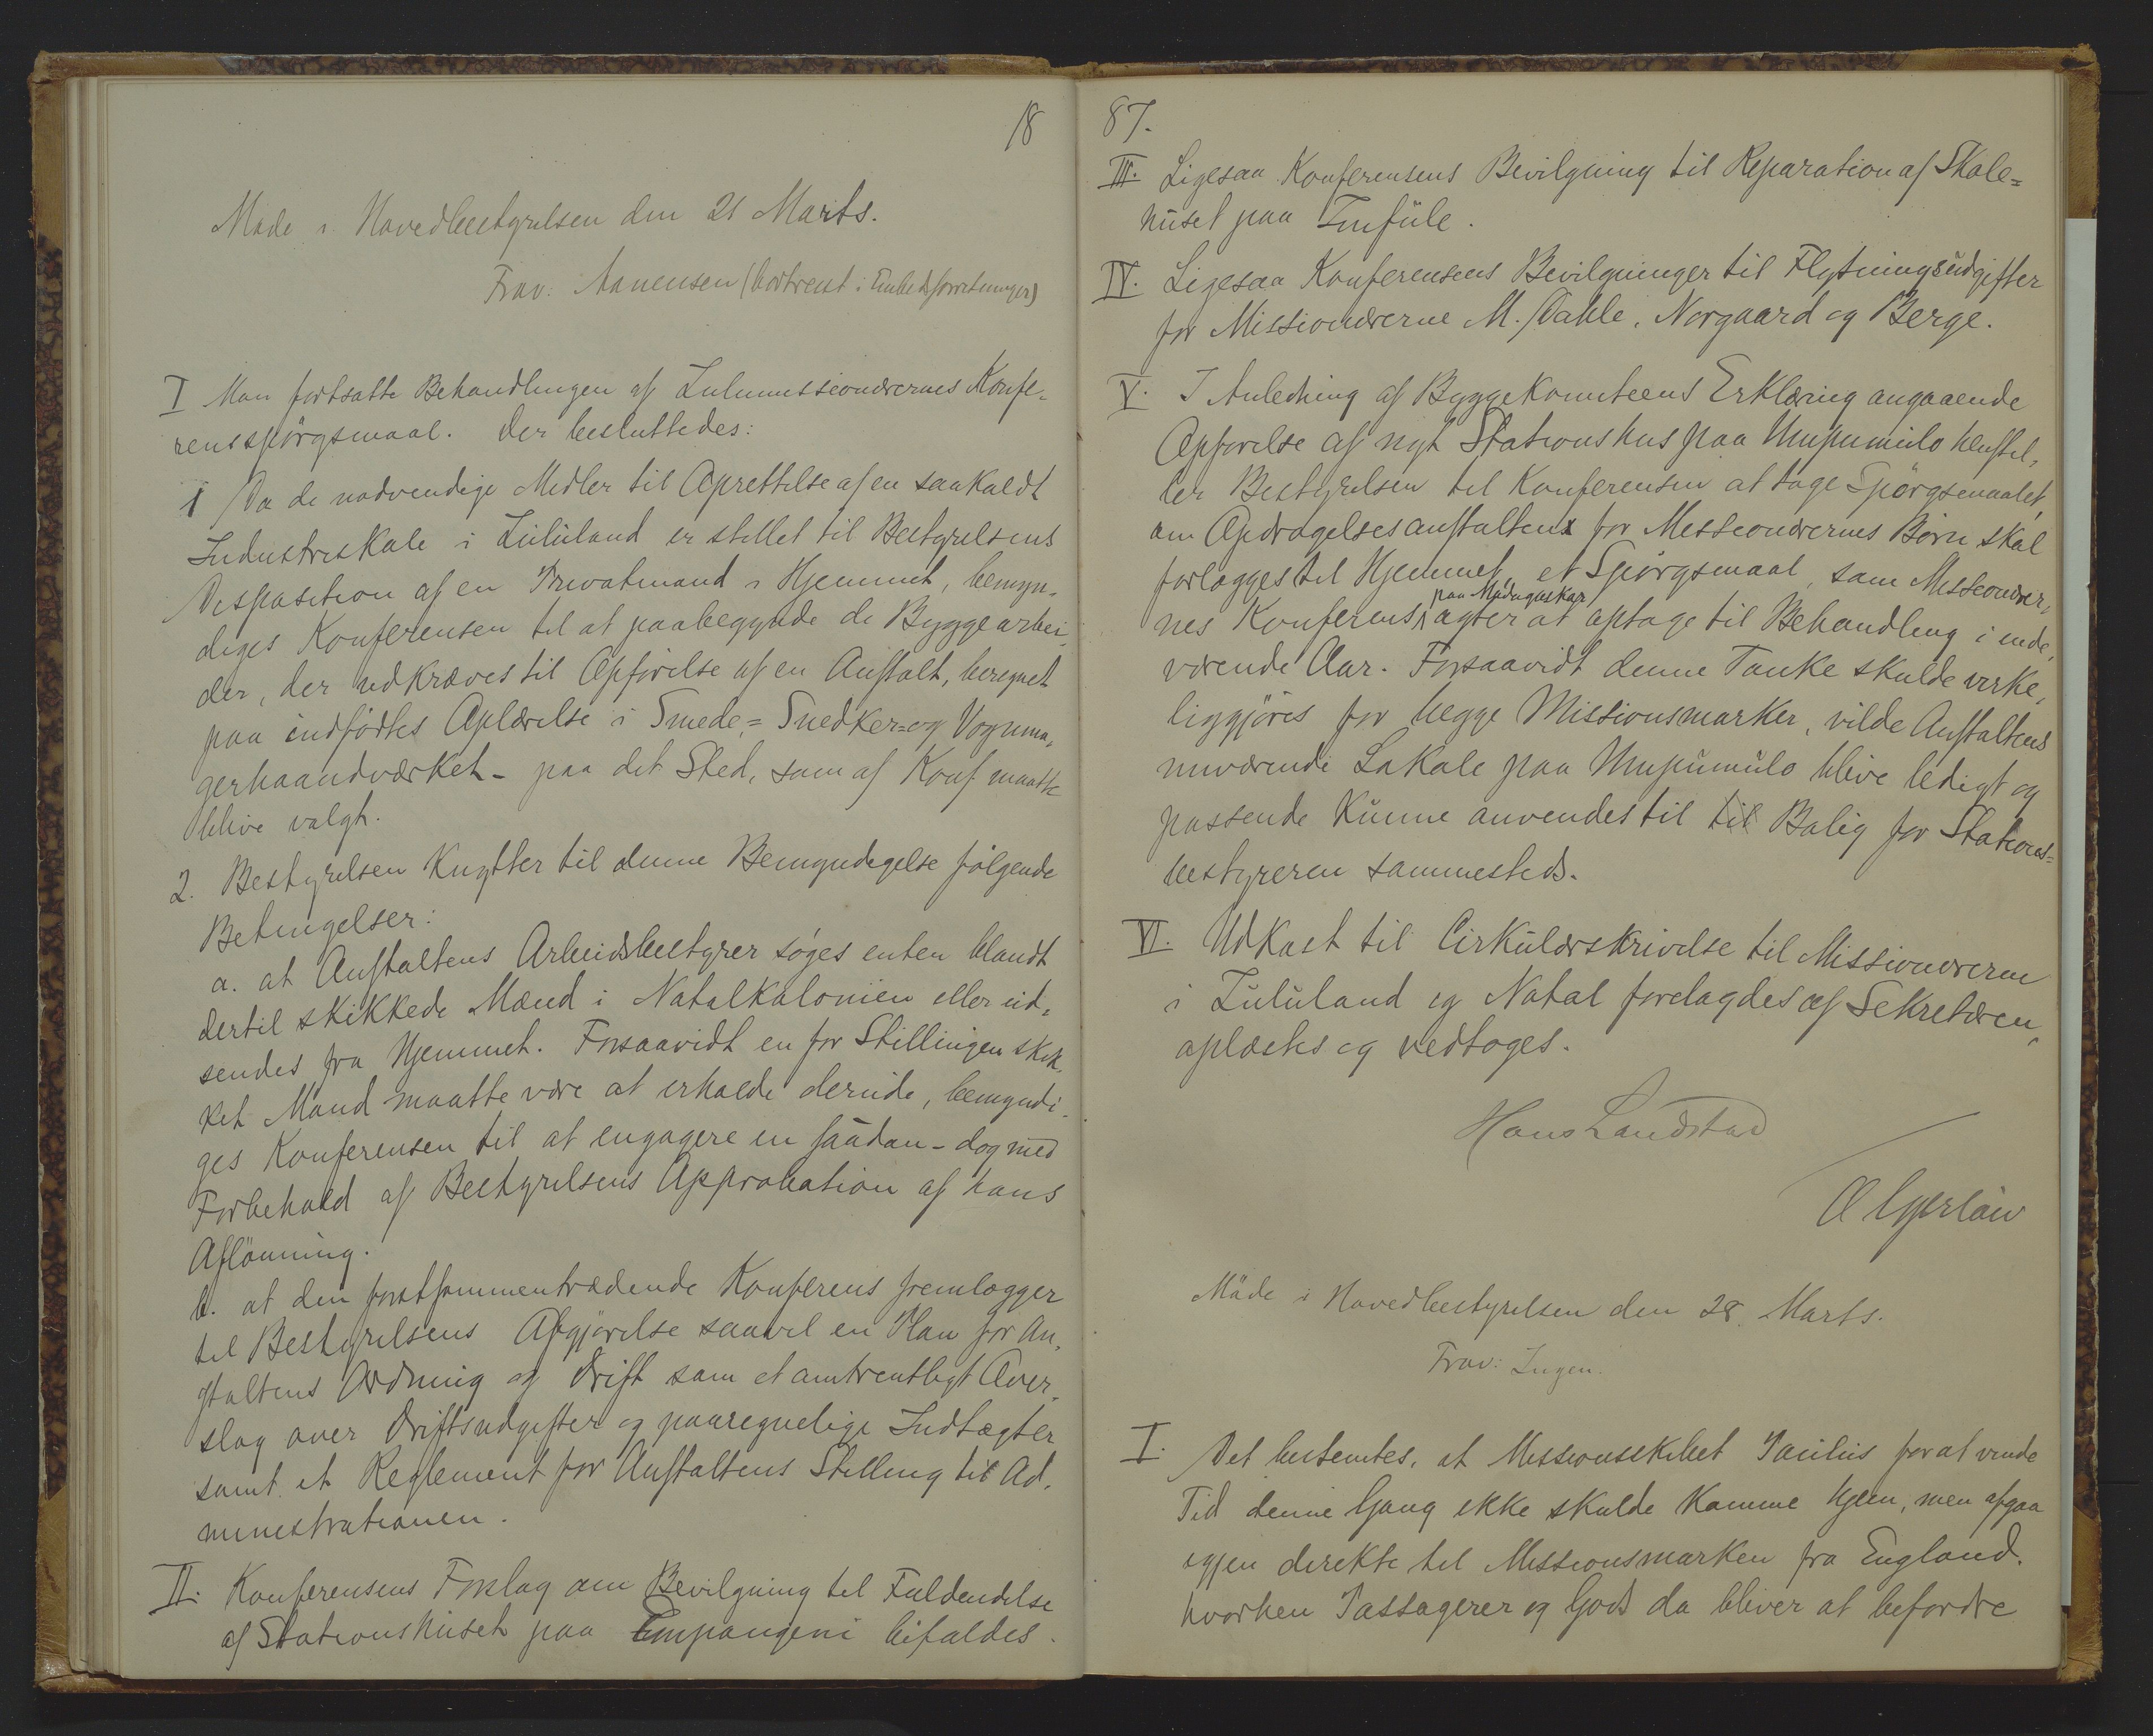 18
Møde i Hovedbestyrelsen den 21 Marts.
Frav: Aanensen (bortreist i Embedsforretninger)
I Man fortsatte Behandlingen af Zulumissionærernes Konfe-
rensspörgsmaal. Der besluttedes:
1 Da de nødvendige Midler til Oprettelse af en saakaldt
Industriskole i Zululand er stillet til Bestyrelsens
Disposition af en Privatmand i Hjemmet, bemyn-
diges Konferensen til at paabegynde de Byggearbei-
der, der udkræves til Opförelse af en Anstalt, beregnet
paa indfödtes Oplærelse i Smede-, Snedker- og Vognma-
gerhaandværket - paa det Sted, som af Konf maatte
blive valgt.
2. Bestyrelsen knytter til denne Bemyndigelse fölgende
Betingelser:
a. at Anstaltens Arbeidsbestyrer söges enten blandt
dertil skikkede Mænd i Natalkolonien eller ud-
sendes fra Hjemmet. Forsaavidt en for Stillingen skik-
ket Mand maatte være at erholde derude, bemyndi-
ges Konferensen til at engagere en saadan - dog med
Forbehold af Bestyrelsens Approbation af hans
Aflönning.
b. at den førstsammentrædende Konferens fremlægger
til Bestyrelsens Afgjörelse saavel en Plan for An-
staltens Ordning og Drift som et omtrentligt Over-
slag over Driftsudgifter og paaregnelige Indtægter
samt et Reglement for Anstaltens Stilling til Ad-
ministrationen.
II. Konferensens Forslag om Bevilgning til Fuldendelse
af Stationshuset paa Empangeni bifaldes.
87.
III. Ligesaa Konferensens Bevilgning til Reparation af Skole=
huset paa Imfule.
IV. Ligesaa Konferensens Bevilgninger til Flytningsudgifter
for Missionærerne M. Dahle, Norgaard og Berge.
V. I Anledning af Byggekomiteens Erklæring angaaende
Opførelse af nyt Stationshus paa Umpumulo henstil-
ler Bestyrelsen til Konferensen at tage Spörgsmaalet,
om Opdragelsesanstalten for Missionærernes Börn skal
forlægges til Hjemmet, et Spörgsmaal, som Missionærer-
nes Konferens paa Madagaskar agter at optage til Behandling i inde-
værende Aar. Forsaavidt denne Tanke skulde virke-
liggjöres for begge Missionsmarker, vilde Anstaltens
nuværende Lokale paa Umpumulo blive ledigt og
passende kunne anvendes til til Bolig for Stations=
bestyreren sammesteds.
VI. Udkast til Cirkulærskrivelse til Missionærerne
i Zululand og Natal forelagdes af Sekretæren,
oplæstes og vedtoges.
Hans Landstad
O Gjerløw
Möde i Hovedbestyrelsen den 28. Marts.
Frav: Ingen.
I. Det bestemtes, at Missionsskibet Paulus for at vinde
Tid denne Gang ikke skulde komme hjem, men afgaa
igjen direkte til Missionsmarken fra England.
hvorhen Passagerer og Gods da bliver at befordre